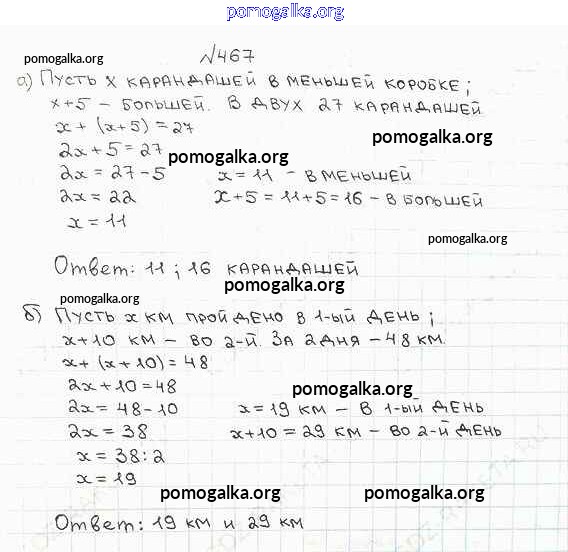 pomogalka.org
pomogalka.org №467
а) Пусть x карандашей в меньшей коробке;
x+5 – большей. В двух 27 карандашей
x + (x+5) = 27
pomogalka.org
2x + 5 = 27
pomogalka.org
2x = 27 - 5 x = 11 – в меньшей
2x = 22 x+5 = 11+5 = 16 – в большей
x = 11
pomogalka.org
Ответ: 11 ; 16 карандашей
pomogalka.org
pomogalka.org
б) Пусть x км пройдено в 1-ый день;
x+10 км – во 2-й. За 2 дня – 48 км.
x + (x + 10) = 48
2x + 10 = 48
pomogalka.org
2x = 48-10 x = 19 км – в 1-ый день
2x = 38 x+10 = 29 км – во 2-й день
x = 38 : 2
x = 19
pomogalka.org pomogalka.org
Ответ: 19 км и 29 км